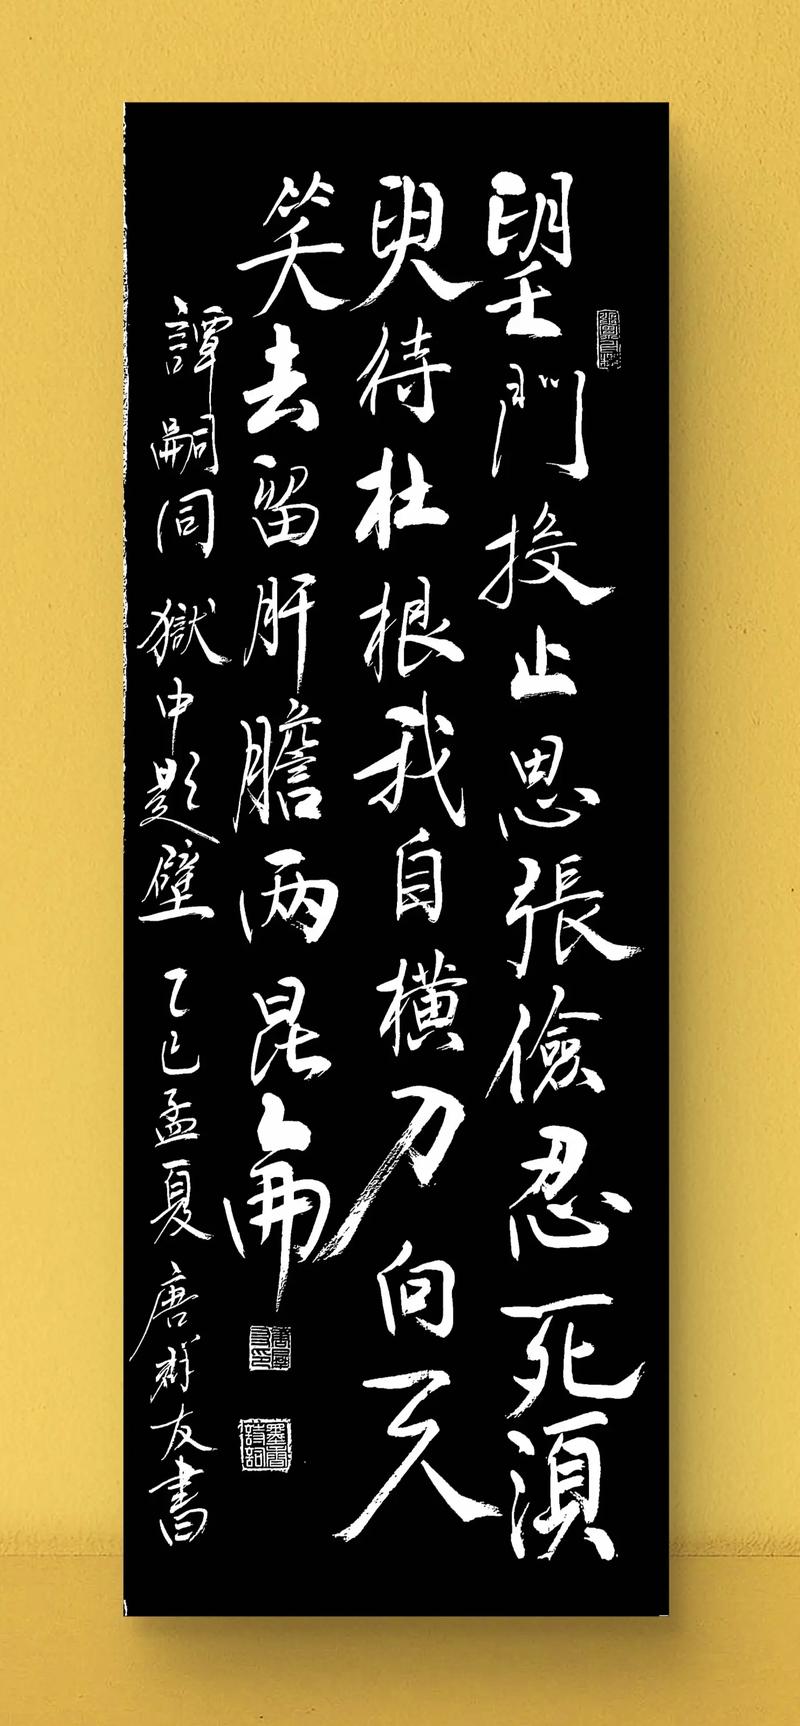 望門投止思張儉忍死須
臾待杜根我自橫刀向天
笑去留肝膽两昆侖
譚嗣同獄中題壁乙巳孟夏唐群友書